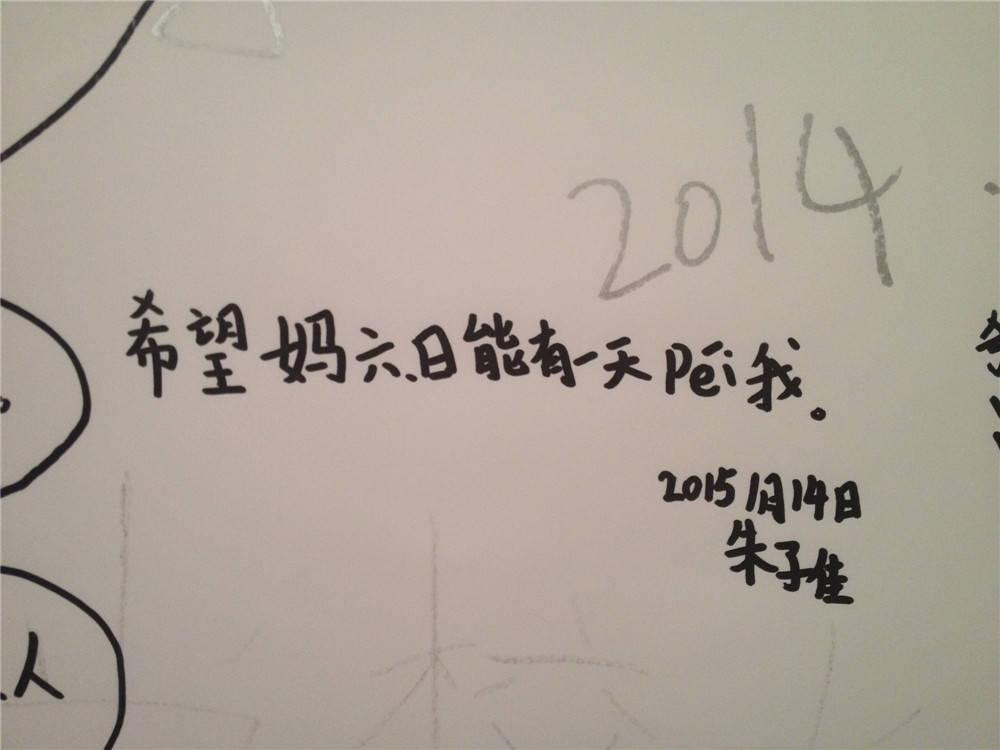 2014
希望妈六、日能有一天Pēi我。
2015 1月14日
朱子佳
人